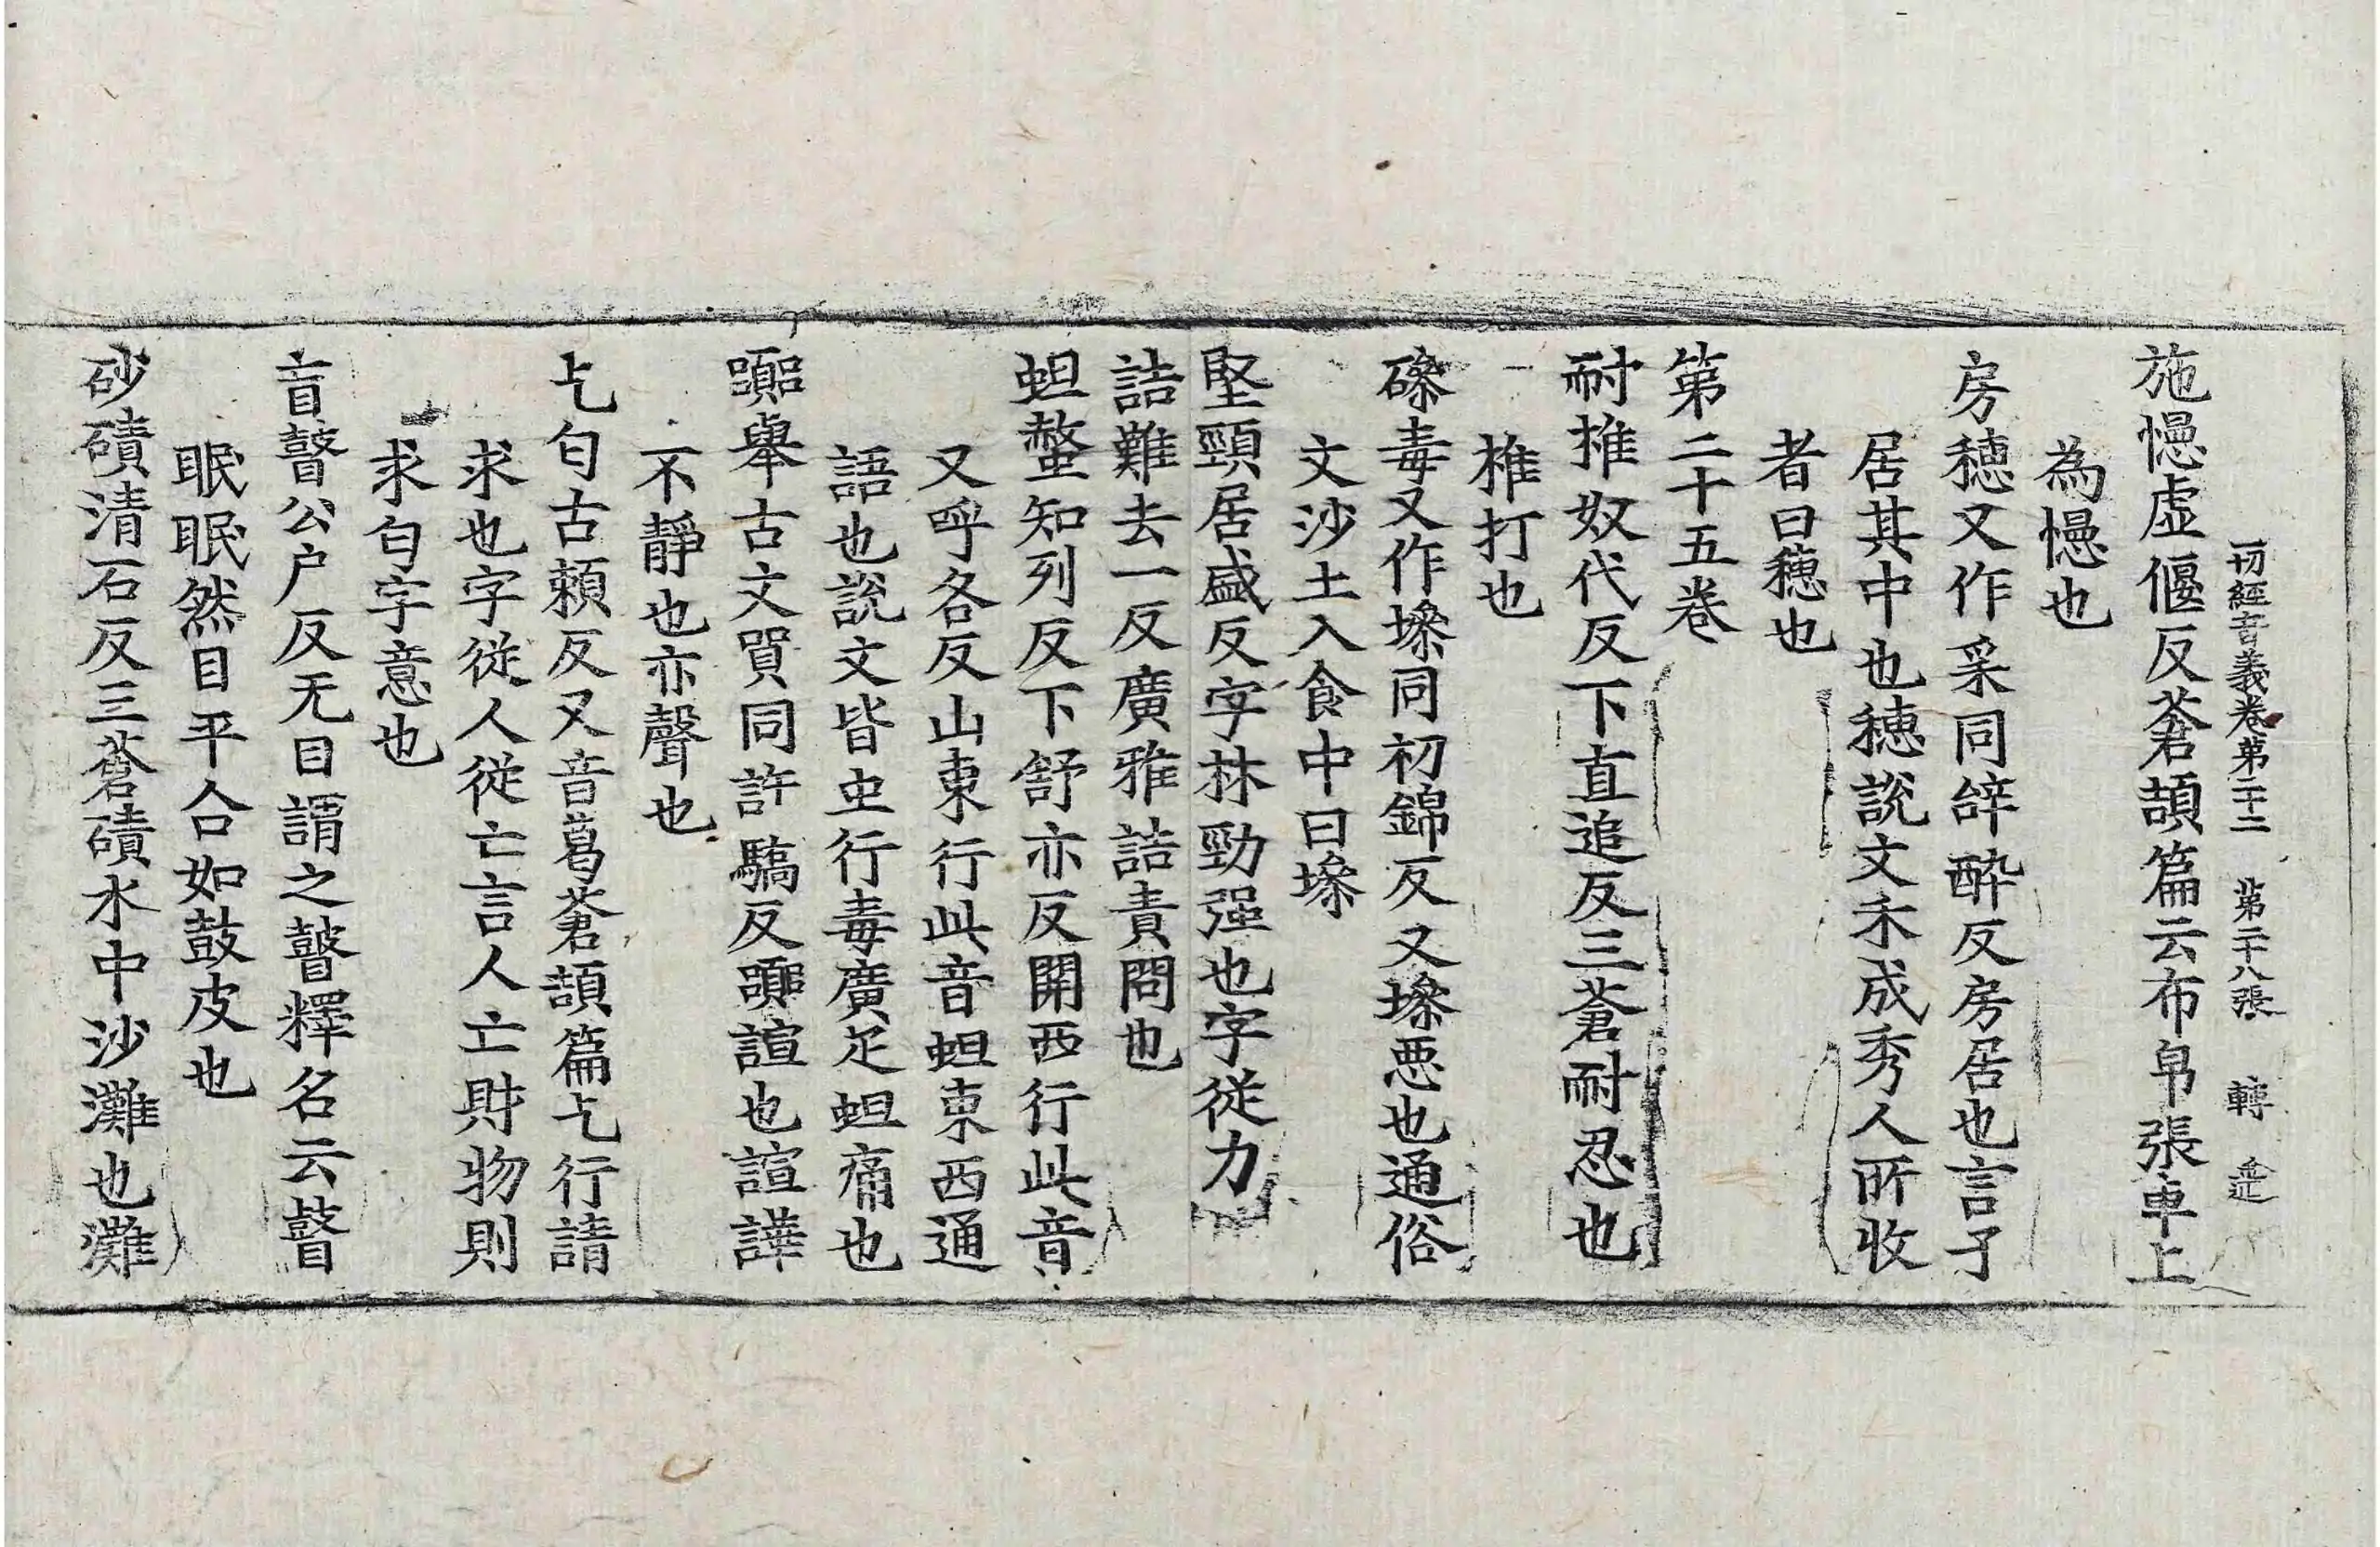 一切經音義卷第二十二 第二十八張 轉
施幰虛偃反蒼頡篇云布帛張車上
為幰也
房穗又作采同辝酔反房居也言子
居其中也穗說文禾成秀人所收
者曰穗也
第二十五卷
耐搥奴代反下直追反三蒼耐忍也
椎打也
磣毒又作墋同初錦反又墋惡也通俗
文沙土入食中曰墋
堅頸居盛反字林勁强也字從力
詰難去一反廣雅詰責問也
蛆螫知列反下舒亦反關西行此音
又呼各反山東行此音蛆東西通
語也說文皆虫行毒廣疋蛆痛也
嚻舉古文買同許驕反嚻諠也諠譁
不靜也亦聲也
乞匄古賴反又音葛蒼頡篇乞行請
求也字從人從亡言人亡財物則
求匄字意也
盲瞽公户反无目謂之瞽釋名云瞽
眠眠然目平合如鼓皮也
砂磧清石反三蒼磧水中沙灘也灘